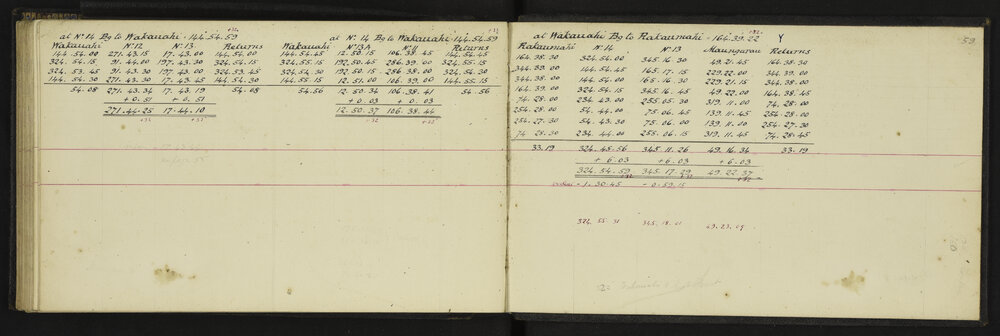 at No 14 Bg to Wakauahi - 144.54.59
Wakauahi No 12 No 13 Returns
144.54.00 271.43.15 17.43.00 144.54.00
324.54.15 91.44.00 197.43.30 324.54.15
324.53.45 91.43.30 197.43.00 324.53.45
144.54.30 271.43.30 17.43.45 144.54.30
54.08 271.43.34 17.43.19 54.08
+ 0.51 + 0.51
271.44.25 17.44.10
at No 14 Bg to Wakauahi - 144.54.59
Wakauahi No 13A No 11 Returns
144.54.45 12.50.15 106.38.45 144.54.45
324.55.15 192.50.45 286.39.00 324.55.15
324.54.30 192.50.15 286.38.00 324.54.30
144.55.15 12.51.00 106.39.00 144.55.15
54.56 12.50.34 106.38.41 54.56
+ 0.03 + 0.03
12.50.37 106.38.44
at Wakauahi Bg to Rataumahi - 164.39.22
59
Rataumahi No 14 No 13 Maungarau Returns
164.38.30 324.54.00 345.16.30 49.21.45 164.38.30
344.39.00 144.54.45 165.17.15 229.22.00 344.39.00
344.38.00 144.54.15 165.16.30 229.21.15 344.38.00
164.39.00 324.54.15 345.16.45 49.22.00 164.38.45
74.28.00 234.43.00 255.05.30 319.11.00 74.28.00
254.28.00 54.44.00 75.06.45 139.11.45 254.28.00
254.27.30 54.43.30 75.06.00 139.11.00 254.27.30
74.28.30 234.44.00 255.06.15 319.11.45 74.28.30
33.19 324.48.56 345.11.26 49.16.34 33.19
+ 6.03 + 6.03 + 6.03
324.54.59 345.17.29 49.22.37
- 1.30.45 - 0.59.15
324.55.31 345.18.01 49.23.09